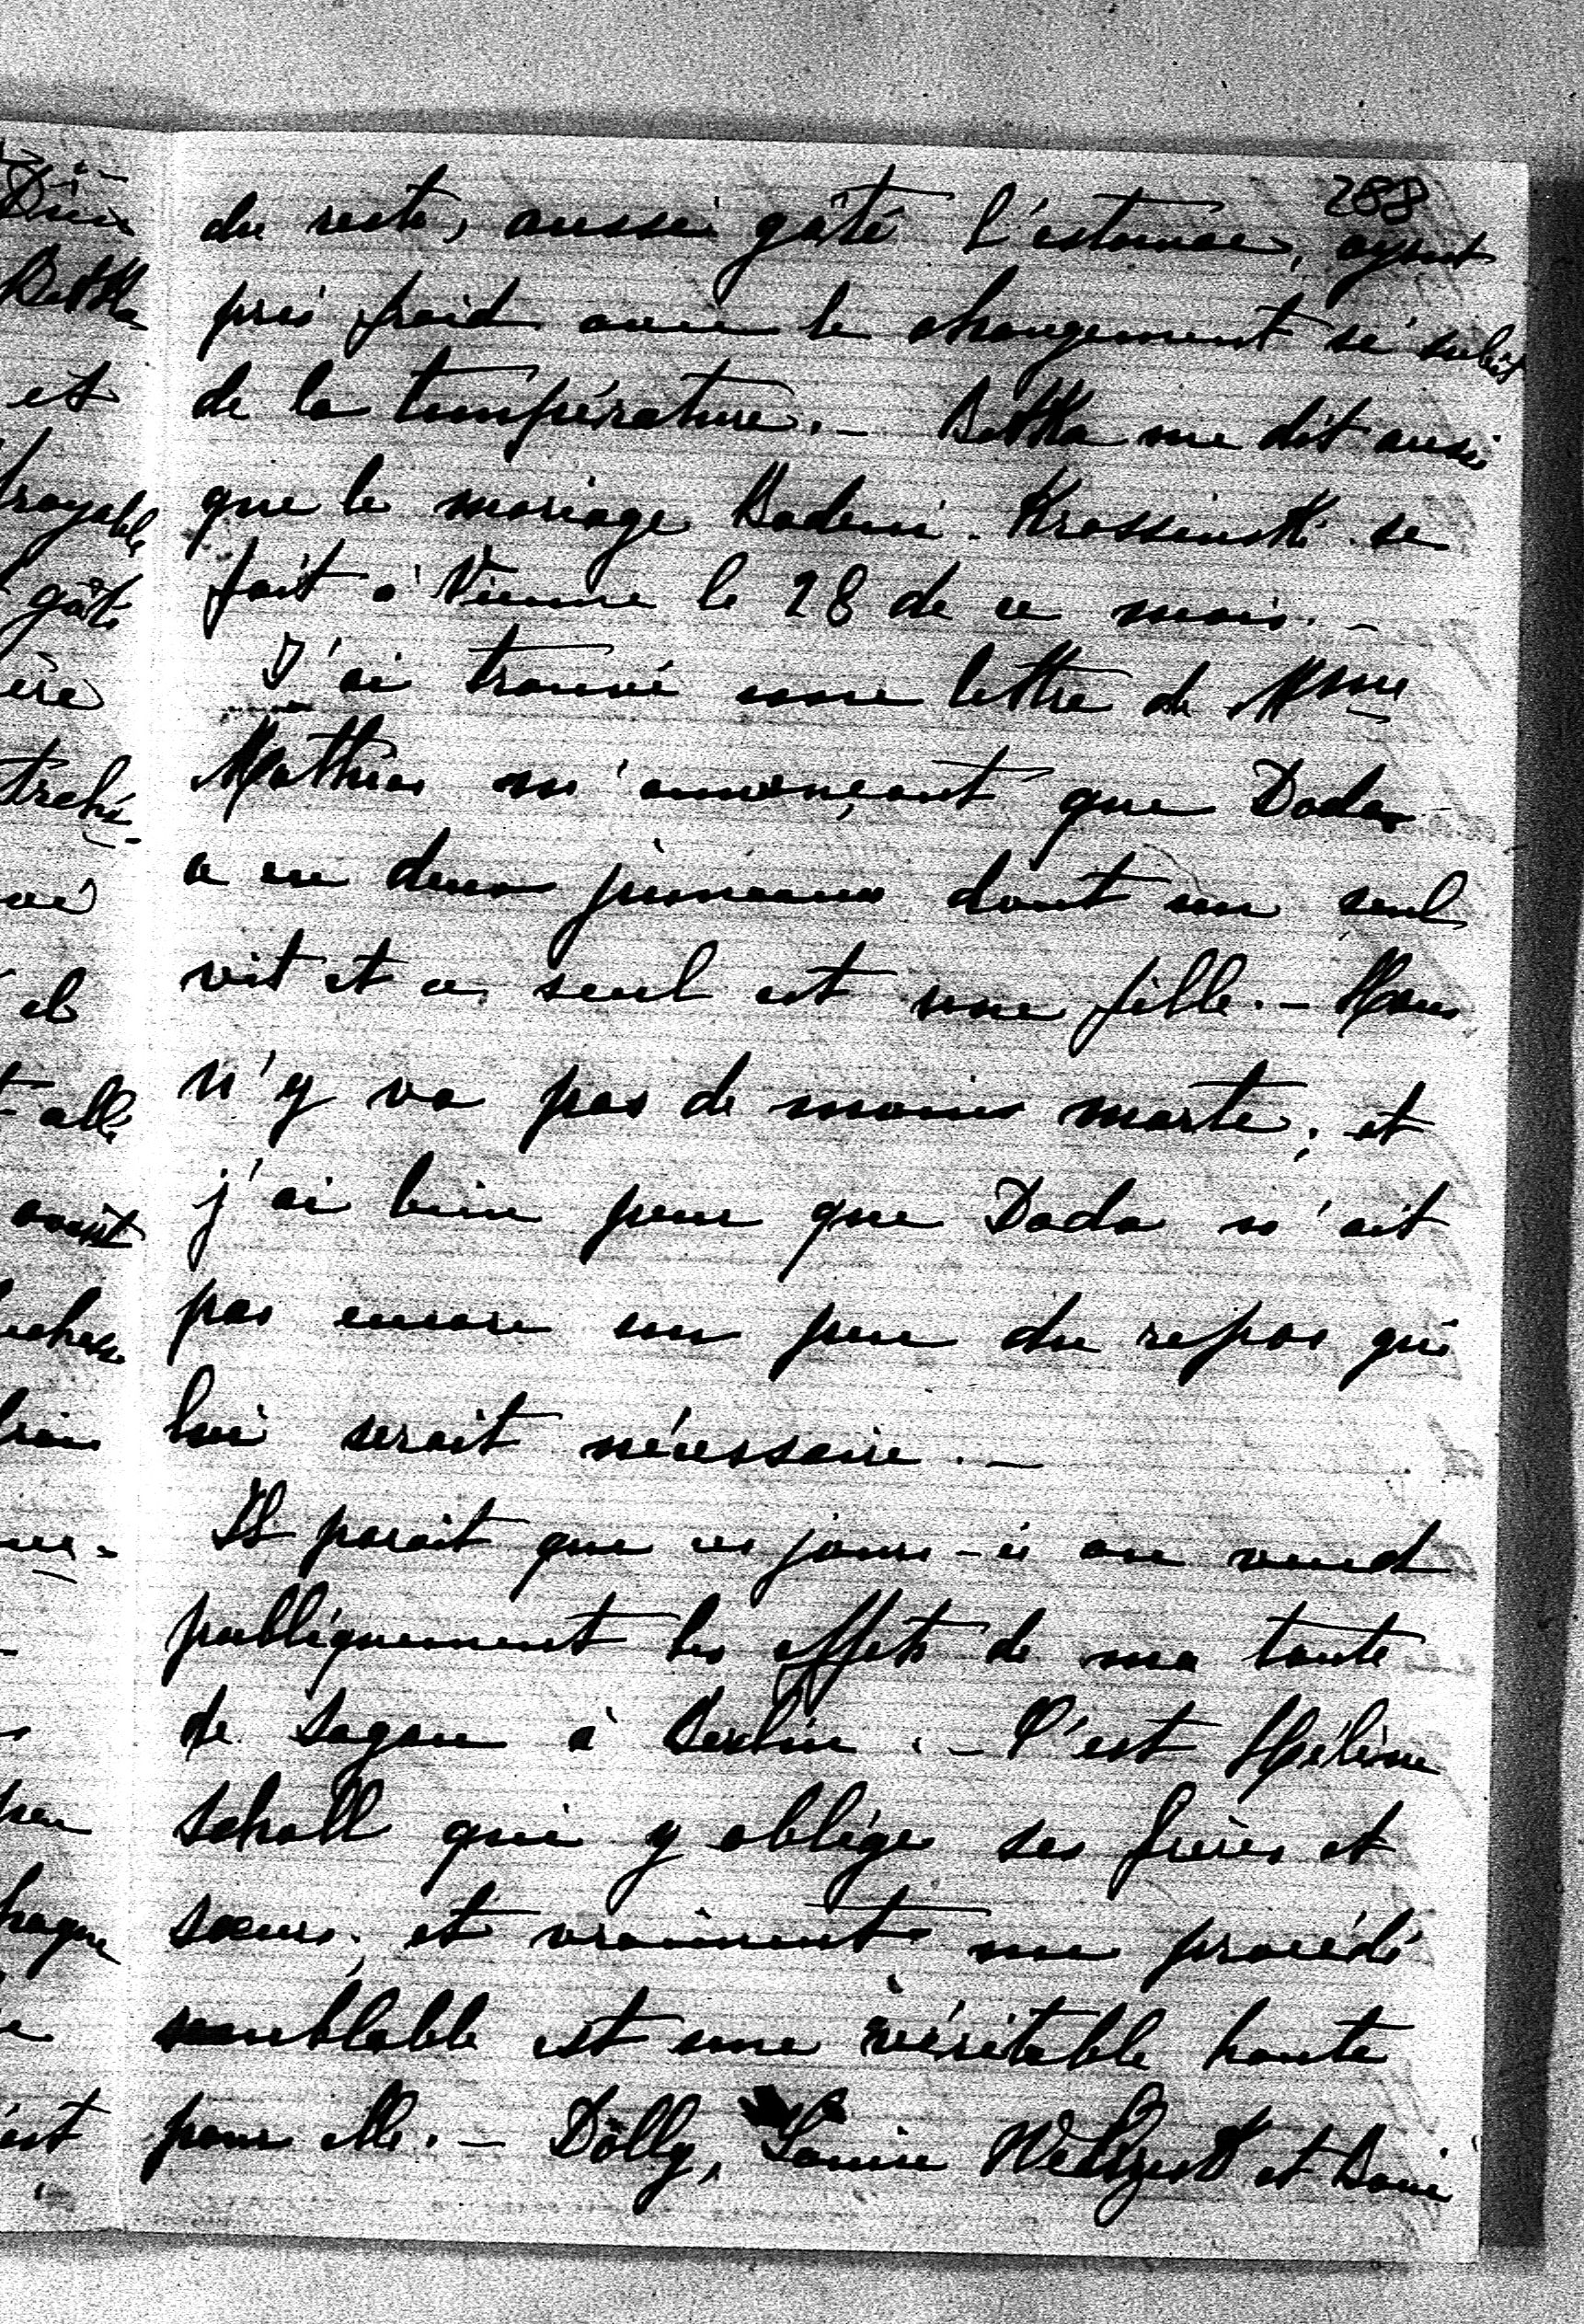 288
du reste, aussi gâté l'estomac, ayant
pris froid avec le changement si subit
de la température. - Betka me dit aussi
que le mariage Badeni-Krasinski se
fait à Vienne le 28 de ce mois. -
J'ai trouvé une lettre de Mme
Mathias m'annonçant que Doda
a eu deux jumeaux dont un seul
vit et ce seul est une fille. -
n'y va pas de main morte; et
j'ai bien peur que Doda n'ait
pas encore un peu du repos qui
lui serait nécessaire. -
Il parait que ces jours-ci on vend
publiquement les effets de ma tante
de Sagan à Berlin. - C'est Hélène
Scholl qui y oblige ses frères et
sœurs; et vraiment un procédé
semblable est une véritable honte
pour elle. - Dolly, Louise et
Dine
Betka
et
gâté
ère
el
allé
avait
est